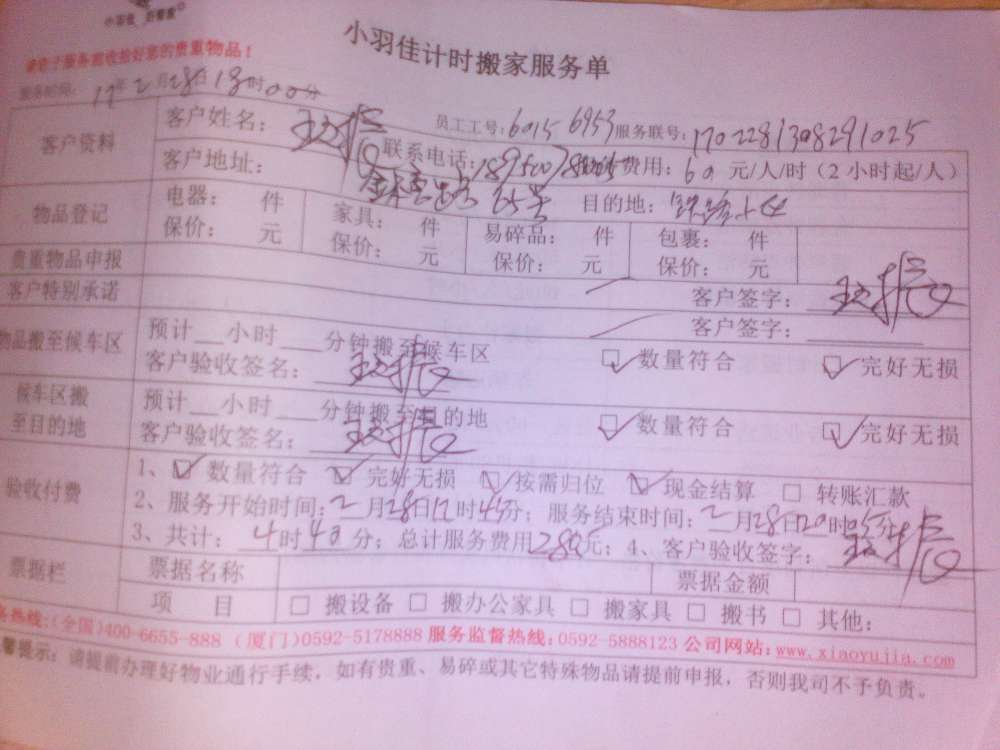 小羽佳 好管家
小羽佳计时搬家服务单
请您于服务前收拾好您的贵重物品！
服务时间：17年2月28日13时00分
员工工号：6015 6953 服务联号：1702281308291025
客户资料
客户姓名：
联系电话： 费用：60元/人/时（2小时起/人）
客户地址： 65号 目的地：
物品登记
电器： 件 家具： 件 易碎品： 件 包裹： 件
保价： 元 保价： 元 保价： 元 保价： 元
贵重物品申报 客户签字：
客户特别承诺 客户签字：
物品搬至候车区
预计__小时___分钟搬至候车区 ☑数量符合 ☑完好无损
客户验收签名：
候车区搬至目的地
预计__小时___分钟搬至目的地 ☑数量符合 ☑完好无损
客户验收签名：
验收付费
1、☑数量符合 ☑完好无损 ☑按需归位 ☑现金结算 □转账汇款
2、服务开始时间：2月28日 时45分；服务结束时间：2月28日20时 分
3、共计：4时40分；总计服务费用280元；4、客户验收签字：
票据栏
票据名称 票据金额
项 目 □搬设备 □搬办公家具 □搬家具 □搬书 □其他：
服务热线：(全国)400-6655-888 （厦门)0592-5178888 服务监督热线：0592-5888123 公司网站：www.xiaoyujia.com
温馨提示：请提前办理好物业通行手续，如有贵重、易碎或其它特殊物品请提前申报，否则我司不予负责。